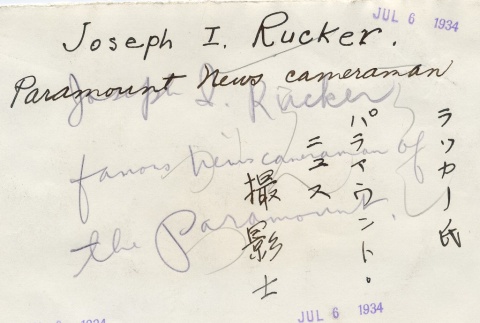 JUL 6 1934
Joseph I. Rucker.
Paramount News cameraman
Joseph I. Rucker
famous News cameraman of
the Paramount.
ラツカー氏
パラマウント・
ニュス
撮影士
JUL 6 1934
1934